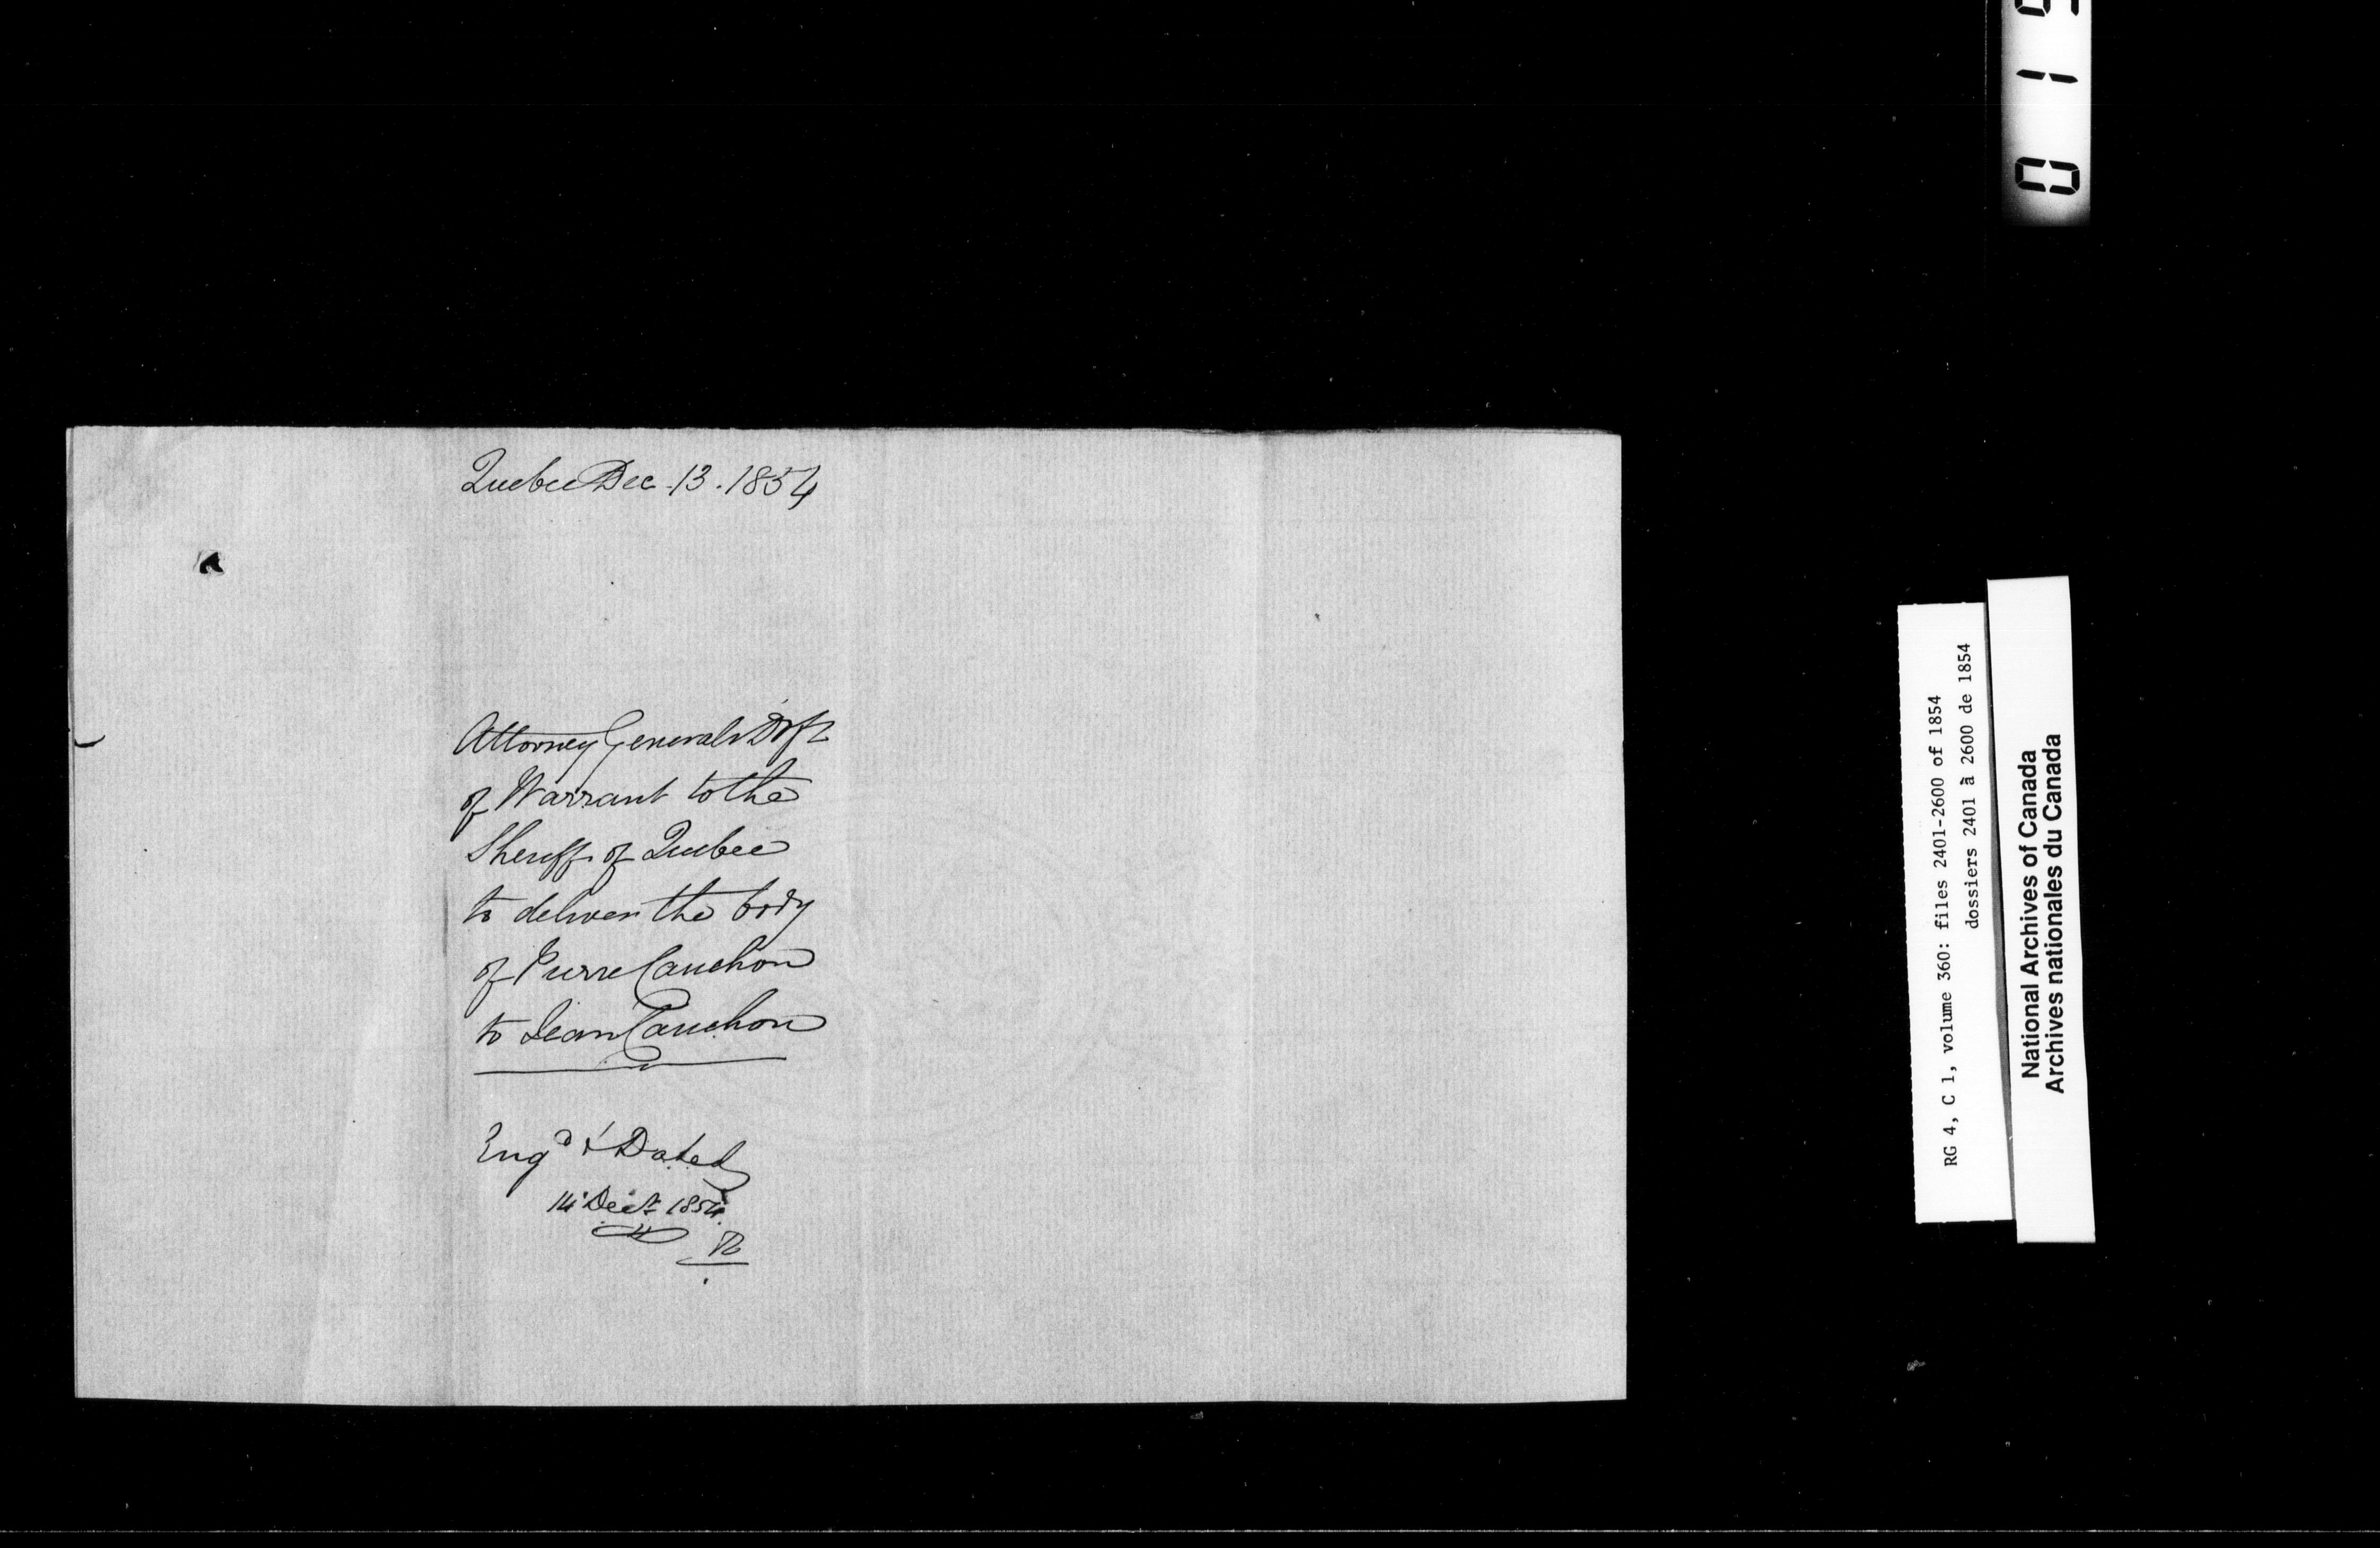 Quebec Dec. 13. 1854
Attorney Generals Dft
of Warrant to the
Sheriff of Quebec
to deliver the body
of Pierre Cauchon
to Jean Cauchon
Engd & Dated
14 Decr 1854.
0 1 5
RG 4, C 1, volume 360: files 2401-2600 of 1854
dossiers 2401 à 2600 de 1854
National Archives of Canada
Archives nationales du Canada